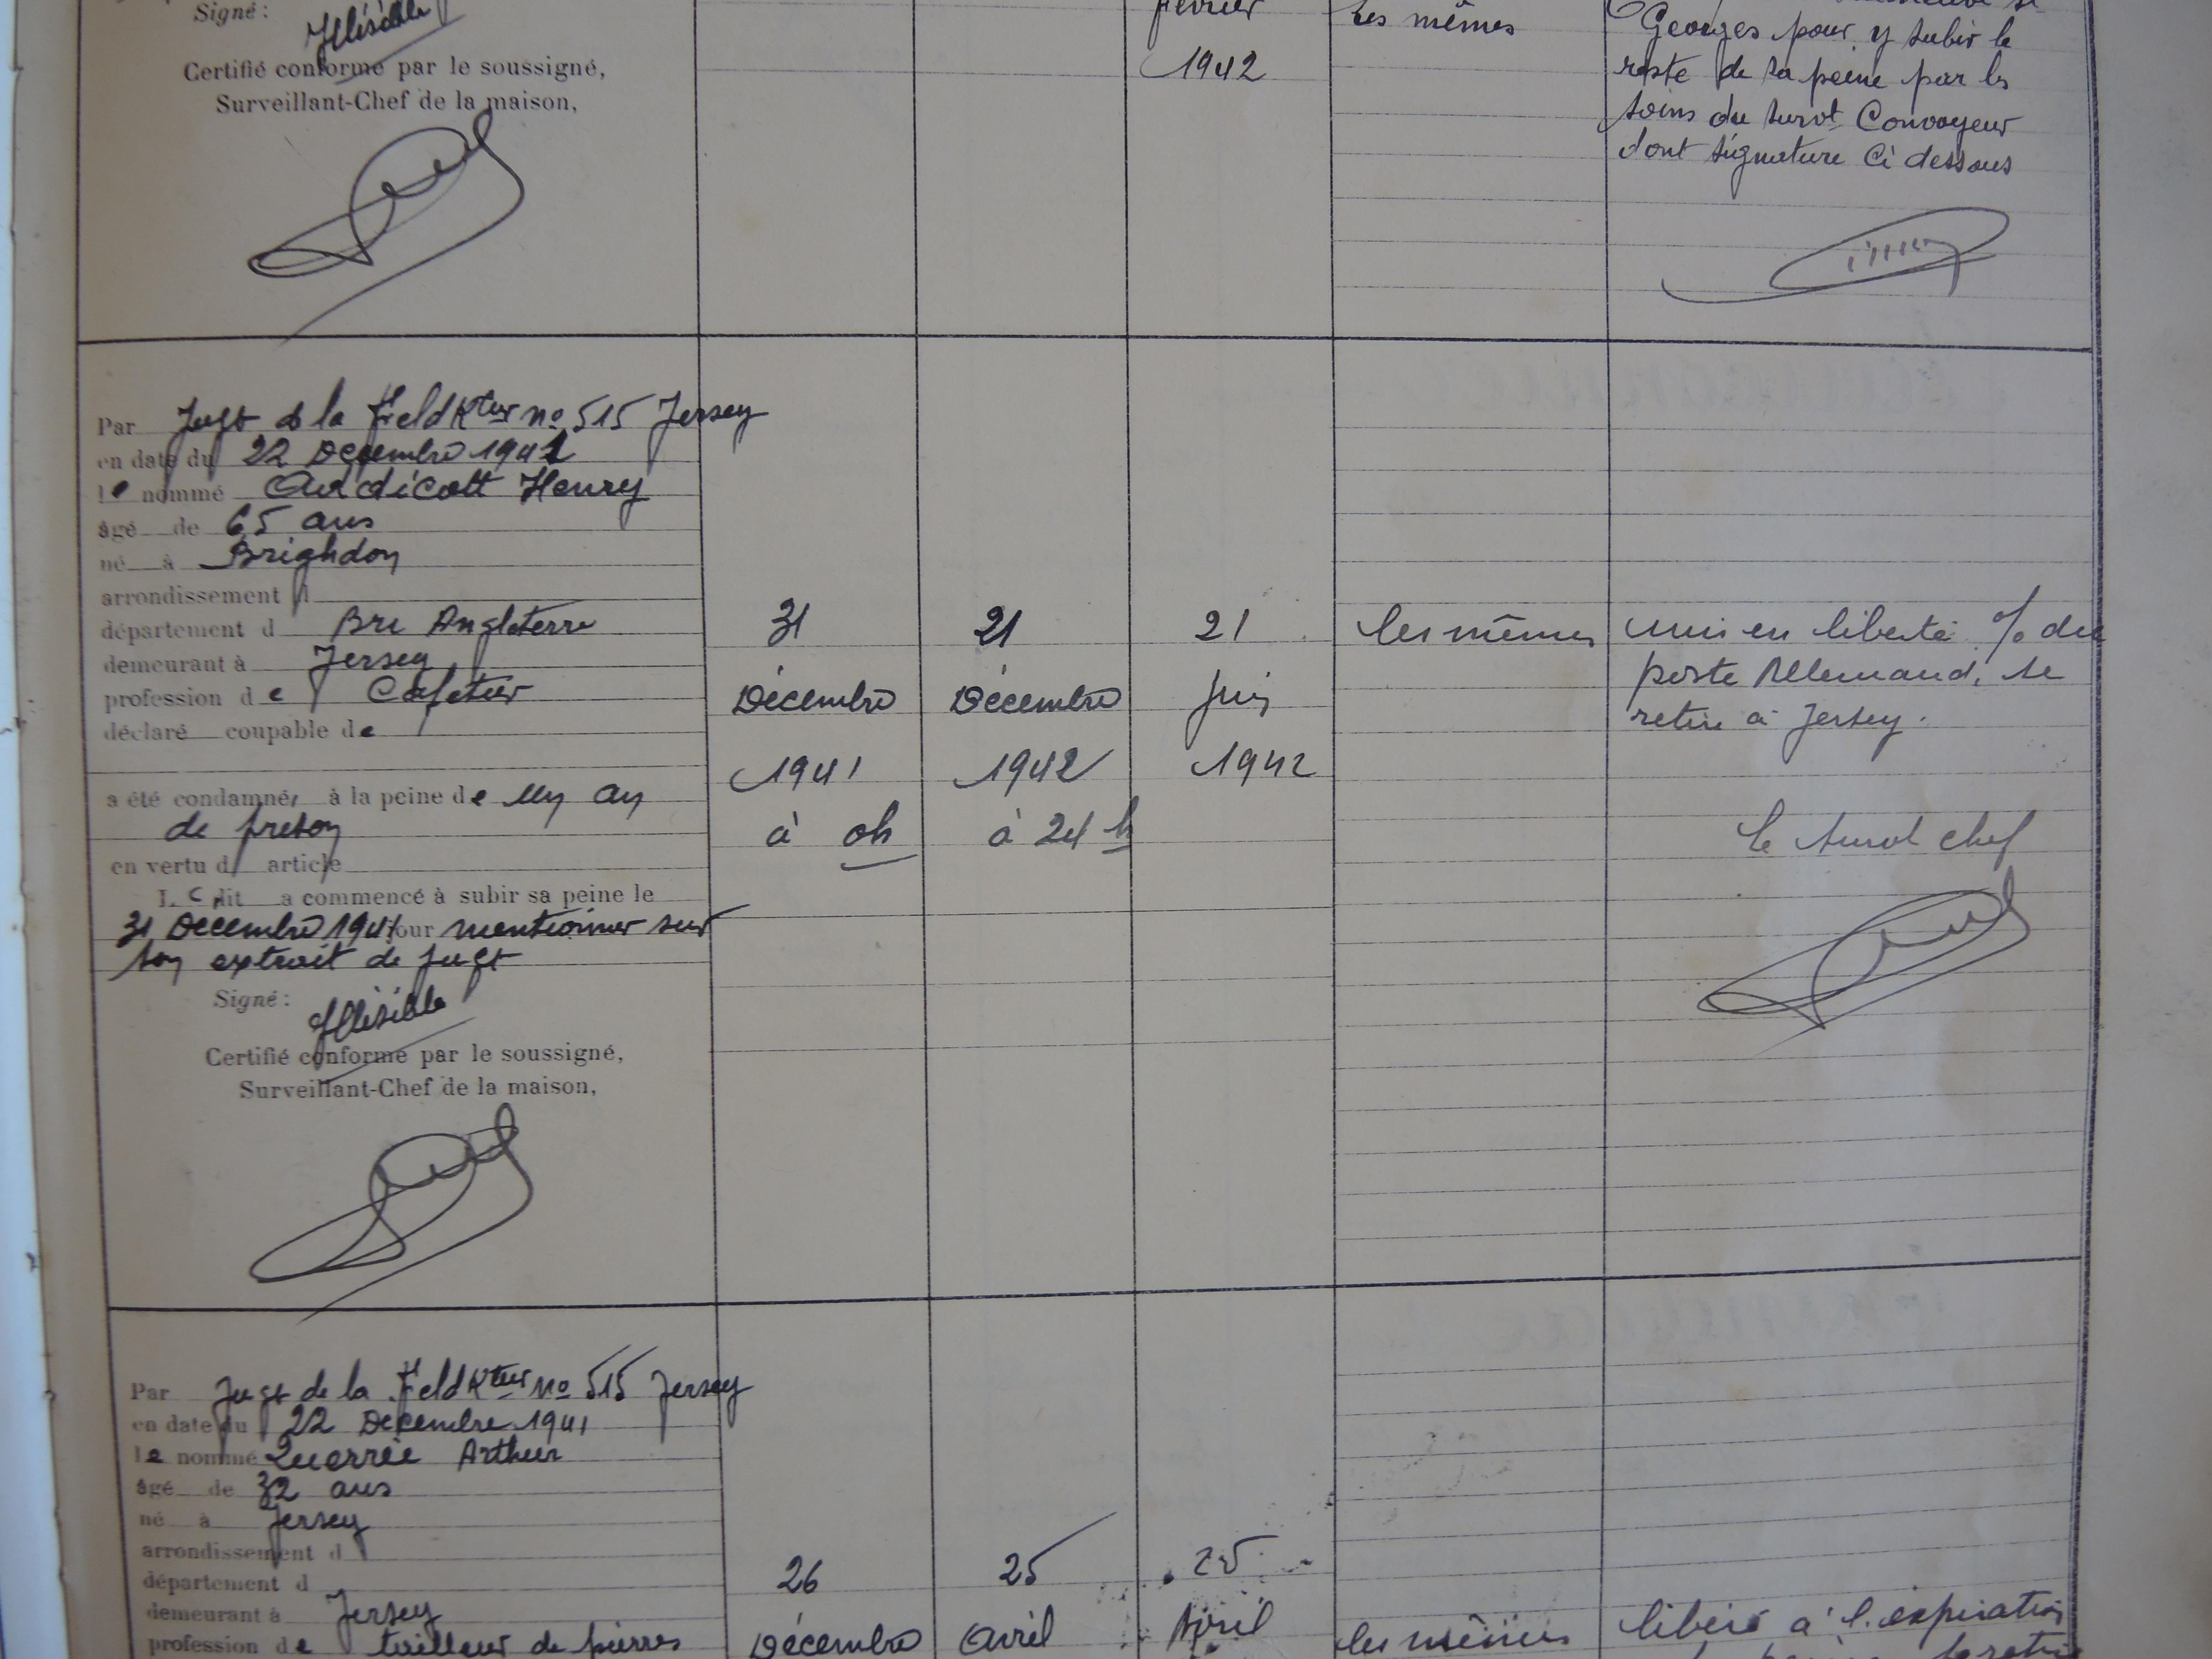 Signé :
Illisible
Certifié conforme par le soussigné,
Surveillant-Chef de la maison,
février
1942
Les mêmes
Georges pour y subir le
reste de sa peine par les
soins du survt Convoyeur
dont signature ci dessous
Par Jugt de la FeldKtur no 515 Jersey
en date du 22 Décembre 1941
le nommé Henry
âgé de 65 ans
né à Brighdon
arrondissement d
département d Bri Angleterre
demeurant à Jersey
profession de Cafetier
déclaré coupable de
a été condamné, à la peine de un an
de prison
en vertu d article
Le dit a commencé à subir sa peine le
31 Décembre 1941 pour mentionner sur
son extrait de jugt
Signé :
Illisible
Certifié conforme par le soussigné,
Surveillant-Chef de la maison,
31
Décembre
1941
à 0h
21
Décembre
1942
à 24 h
21
Juin
1942
les mêmes
mis en liberté % du
poste Allemand, se
retire à Jersey.
le survt chef
Par Jugt de la FeldKtur no 515 Jersey
en date du 22 Décembre 1941
le nommé Querrée Arthur
âgé de 32 ans
né à Jersey
arrondissement d
département d
demeurant à Jersey
profession de tailleur de pierres
26
Décembre
25
Avril
25
Avril
les mêmes
libéré à l'expiration